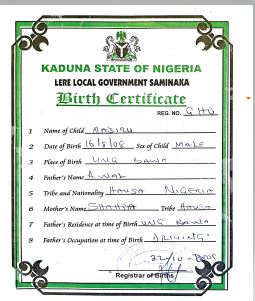 KADUNA STATE OF NIGERIA
LERE LOCAL GOVERNMENT SAMINAKA
Birth Certificate
REG. NO.
1 Name of Child RABIRU
2 Date of Birth 16/5/08 Sex of Child MALE
3 Place of Birth UNG BAWA
4 Father's Name AWAL
5 Tribe and Nationality HAUSA NIGERIA
6 Mother's Name Tribe HAUSA
7 Father's Residence at time of Birth UNG BAWA
8 Father's Occupation at time of Birth
22/10-2008
Registrar of Births